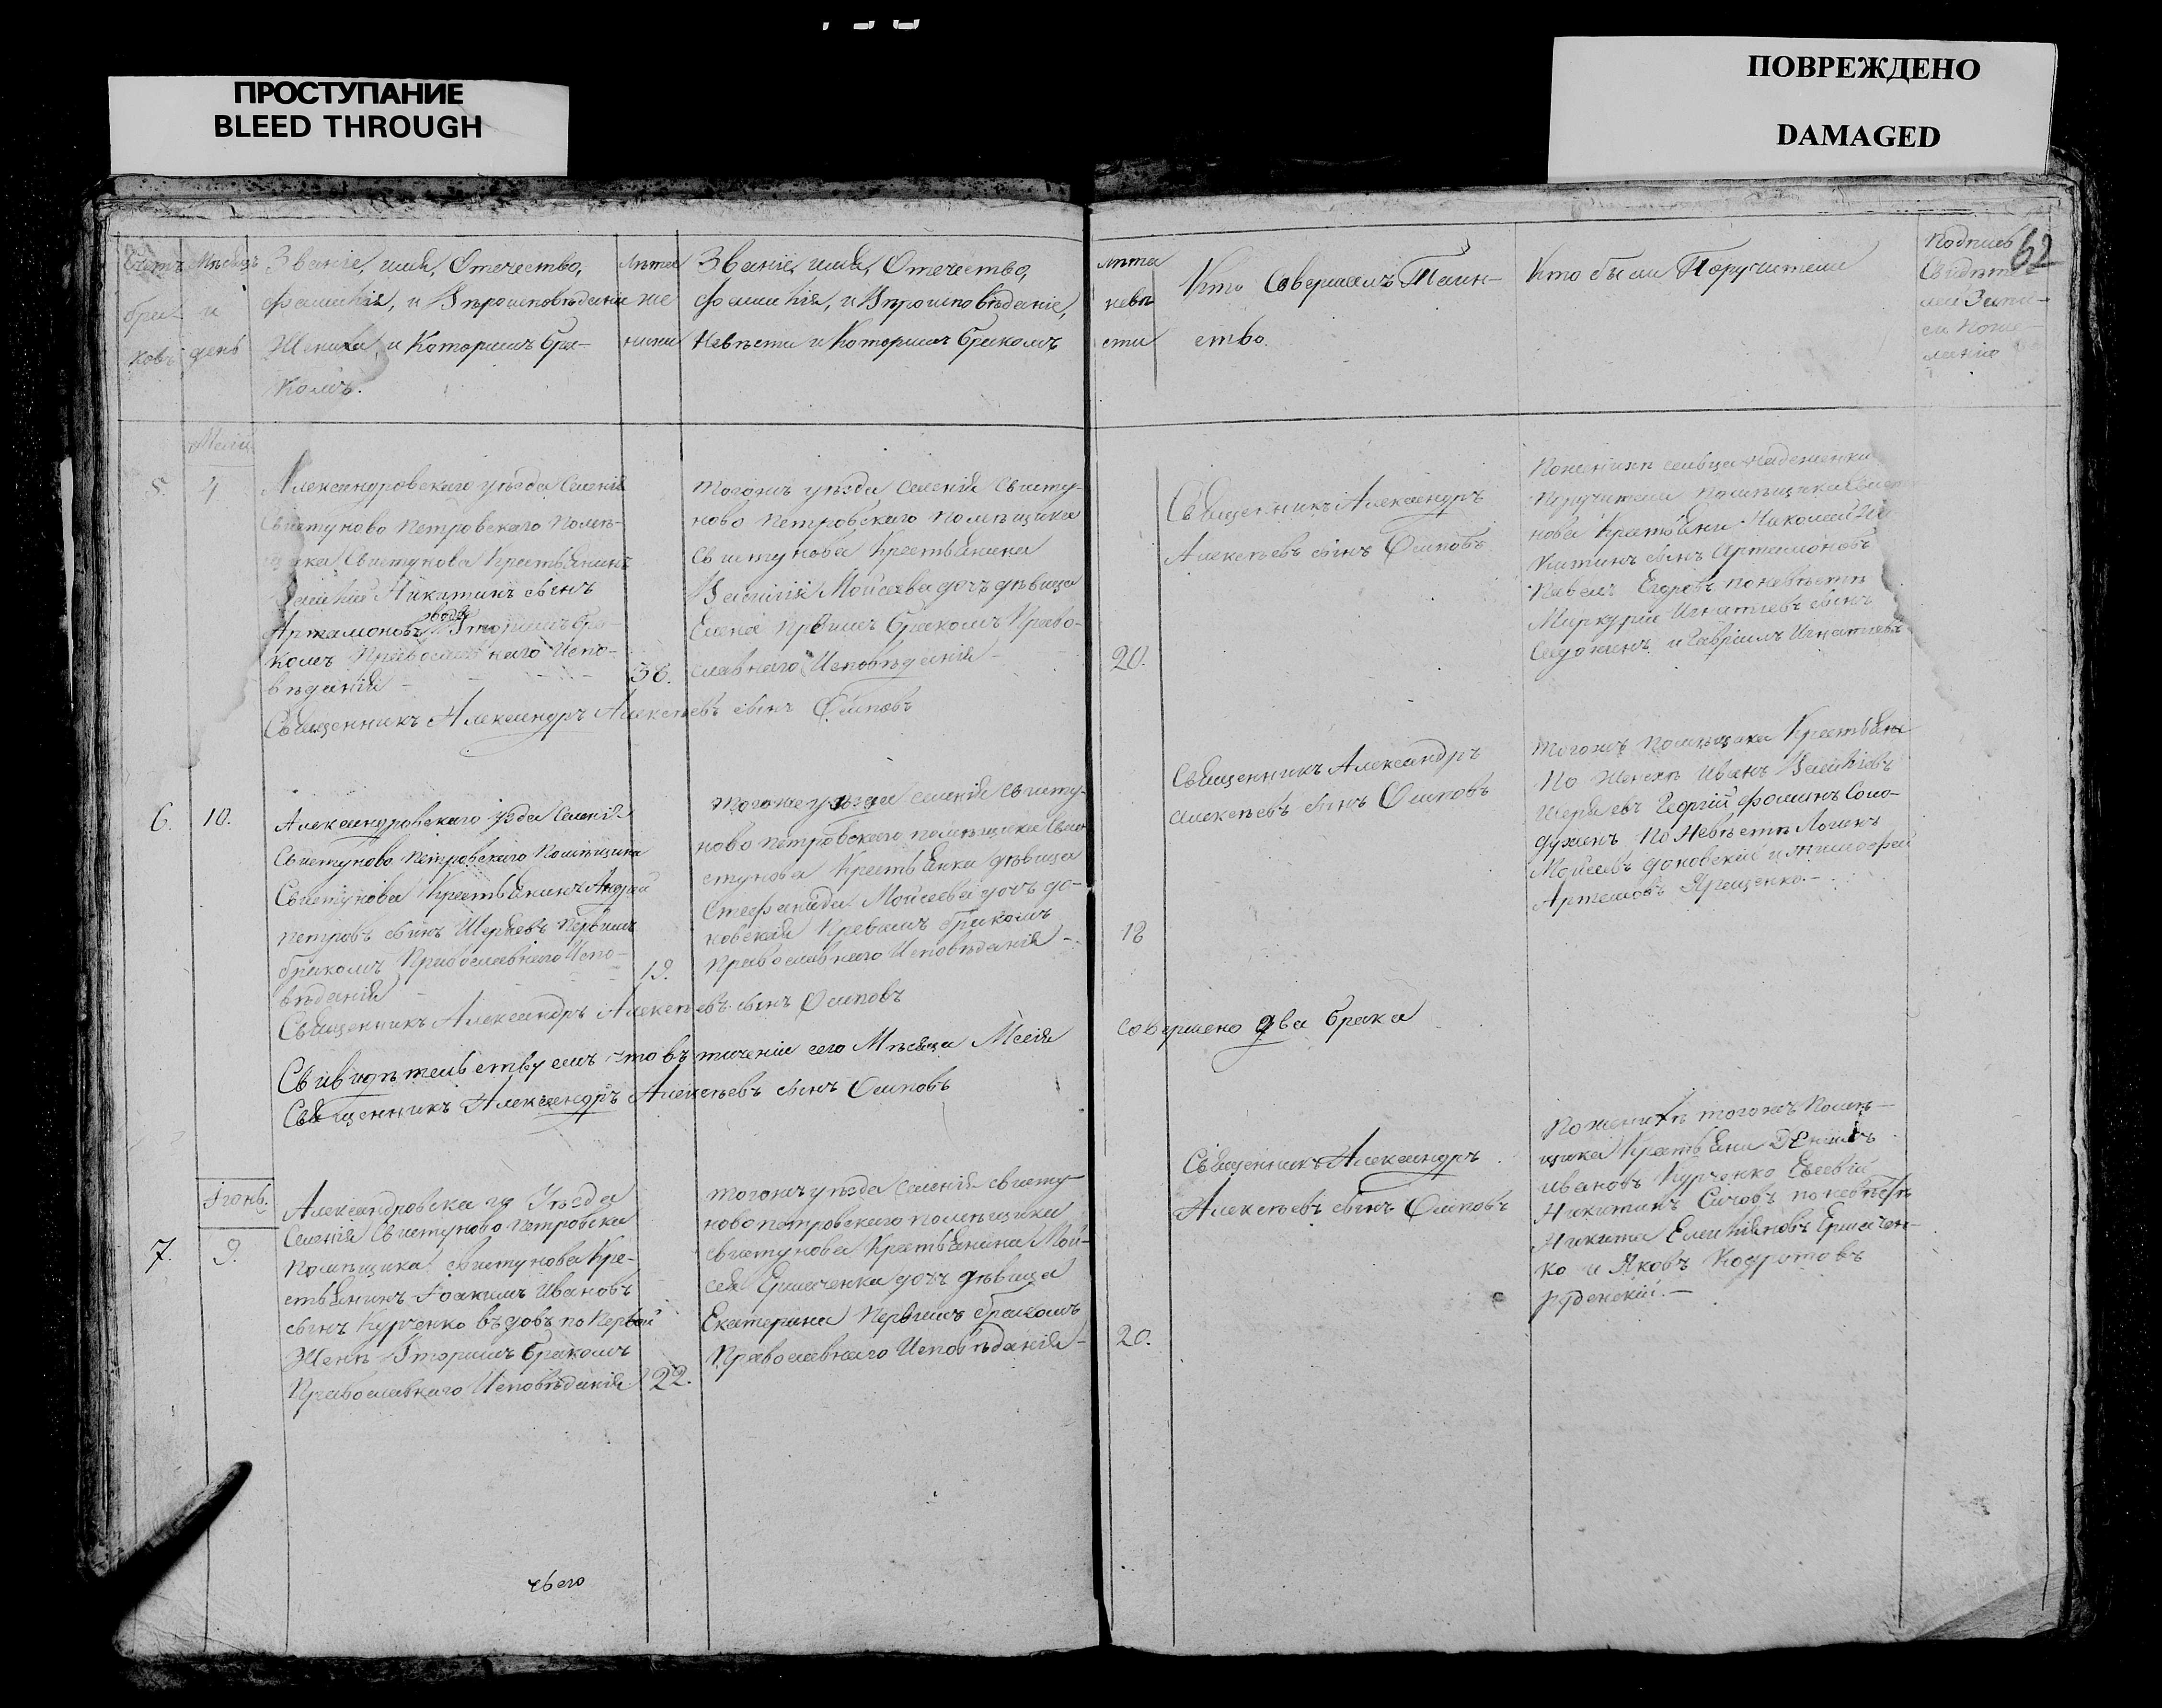 ПРОСТУПАНИЕ
BLEED THROUGH
ПОВРЕЖДЕНО
DAMAGED
62
Счетъ бра- ковъ
Мѣсяцъ и день
Званіе, имя, Отечество,
Фамилія, и Вѣроисповѣданіе
Жениха, и Которимъ Бра-
комъ.
лѣта же ниха
Званіе, имя, Отечество,
Фамилія, и Вѣроисповѣданіе,
Невѣсти и Которимъ бракомъ
лѣта невѣ сти
Кто Совершалъ Таин-
ство.
Кто были Поручители
Подпись
Свидѣте
лей Запи-
си Поже-
ланію
Маій
5. 4
Александровскаго уѣзда Селенія
Свистуново Петровскаго Помѣ-
щика Свистунова Крестьянинъ
Никитинъ сынъ
Артамоновъ вдовъ Вторимъ бра-
комъ Православнаго Испо-
вѣданія
38.
Тогожъ уѣзда Селенія Свисту-
ново Петровскаго Помѣщика
Свистунова Крестьянина
Василія Мойсеева дочь дѣвица
Елена Првимъ бракомъ Право-
славнаго Исповѣданія
20.
Священникъ Александръ
Алексѣевъ сынъ Осиповъ
Поручители Помѣщика
нова Крестьяни Николай
Китинъ сынъ Артамоновъ
Павелъ Егоровъ по невѣстѣ
Меркурій Игнатіевъ сынъ
и Гавріилъ Игнатіевъ
Священникъ Александръ Алексѣевъ сынъ Осиповъ
6. 10.
Александровскаго уѣзда Селенія
Свистуново Петровскаго Помѣщика
Свистунова Крестьянинъ Андрей
Петровъ сынъ Первимъ
бракомъ Православнаго Испо-
вѣданія
19.
Тогоже уѣзда селенія Свисту-
ново Петровскаго помѣщика Сви
стунова Крестьянка дѣвица
Стефанида Мойсеева дочь до-
новская Первимъ бракомъ
Православнаго Исповѣданія
18
Священникъ Александръ
Алексѣевъ сынъ Осиповъ
Тогожъ помѣщика Крестьяни
По Женихѣ Иванъ
Георгій Фоминъ Соло-
духинъ По Невѣстѣ Логинъ
Мойсеевъ доновскій и Тимофей
Артемовъ Ярещенко.
Священникъ Александръ Алексѣевъ сынъ Осиповъ
Свидѣтельствуемъ что въ теченіи сего Мѣсяца Маія Совершено два брака
Священникъ Александръ Алексѣевъ сынъ Осиповъ
Іюнь.
7. 9.
Александровскаго Уѣзда
Селенія Свистуново Петровска
Помѣщика Свистунова Кре-
стьянинъ Іоакимъ Ивановъ
сынъ Курченко въдовъ по Первой
Женѣ Вторимъ бракомъ
Православнаго Исповѣданія
22.
Тогожъ уѣзда Селенія Свисту-
ново петровскаго помѣщика
Свистунова Крестьянина Мой-
сея Ермаченка дочь дѣвица
Екатерина Первимъ бракомъ
Православнаго Исповѣданія
20.
Священникъ Александръ
Алексѣевъ сынъ Осиповъ
По женихѣ тогожъ Помѣ-
щика Крестьяни
Ивановъ Курченко Евсевій
Никитинъ Сичовъ по невѣстѣ
Никита Емельяновъ Ермачен-
ко и Яковъ Кодратовъ
Руденскій.
чьего